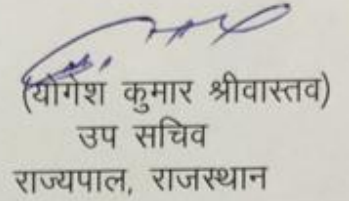 (योगेश कुमार श्रीवास्तव)
उप सचिव
राज्यपाल, राजस्थान